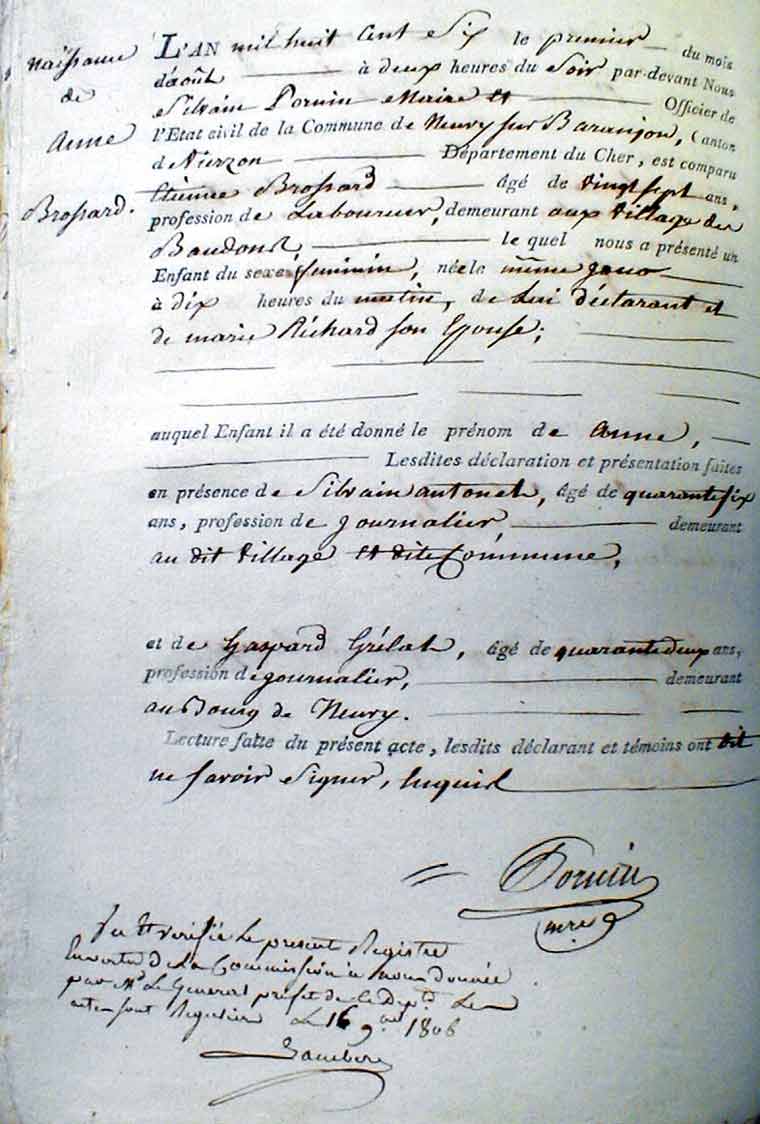 naissance
de
Anne
Brossard.
L'AN mil huit Cent Six le premier du mois
d'août à deux heures du Soir par-devant Nous
Silvain Dorvin Maire et Officier de
l'Etat civil de la Commune de Neuvy sur Baranjon, Canton
de Vierzon Département du Cher, est comparu
Etienne Brossard âgé de vingt sept ans,
profession de Laboureur, demeurant aux Village des
le quel nous a présenté un
Enfant du sexe feminin, née le même jour
à dix heures du matin, de Lui déclarant et
de marie Richard son Epouse;
auquel Enfant il a été donné le prénom de Anne,
Lesdites déclaration et présentation faites
en présence de Silvain antoneh, âgé de quarante six
ans, profession de journalier demeurant
au dit Village et dite Commune,
et de Gaspard Grélah, âgé de quarante deux ans,
profession de journalier, demeurant
au Bourg de Neuvy.
Lecture faite du présent acte, lesdits déclarant et témoins ont dit
ne savoir Signer, enquis
Dorvin
mre
Vu et vérifié le present Registre
En vertu de La Commission à nous donnée
par Mr Le General préfet de le Dept. Les
actes sont Reguliers Le 16 9bre 1806